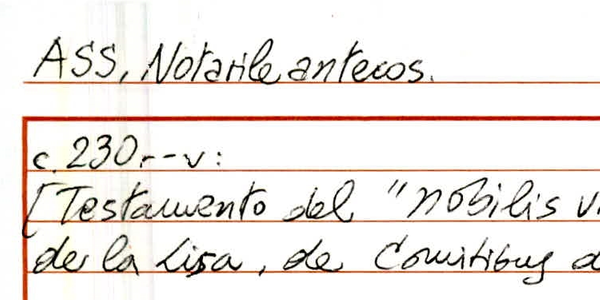 ASS, Notarile antecos.
c. 230r-v:
[Testamento del "nobilis
de la Lisa, de Comitibus